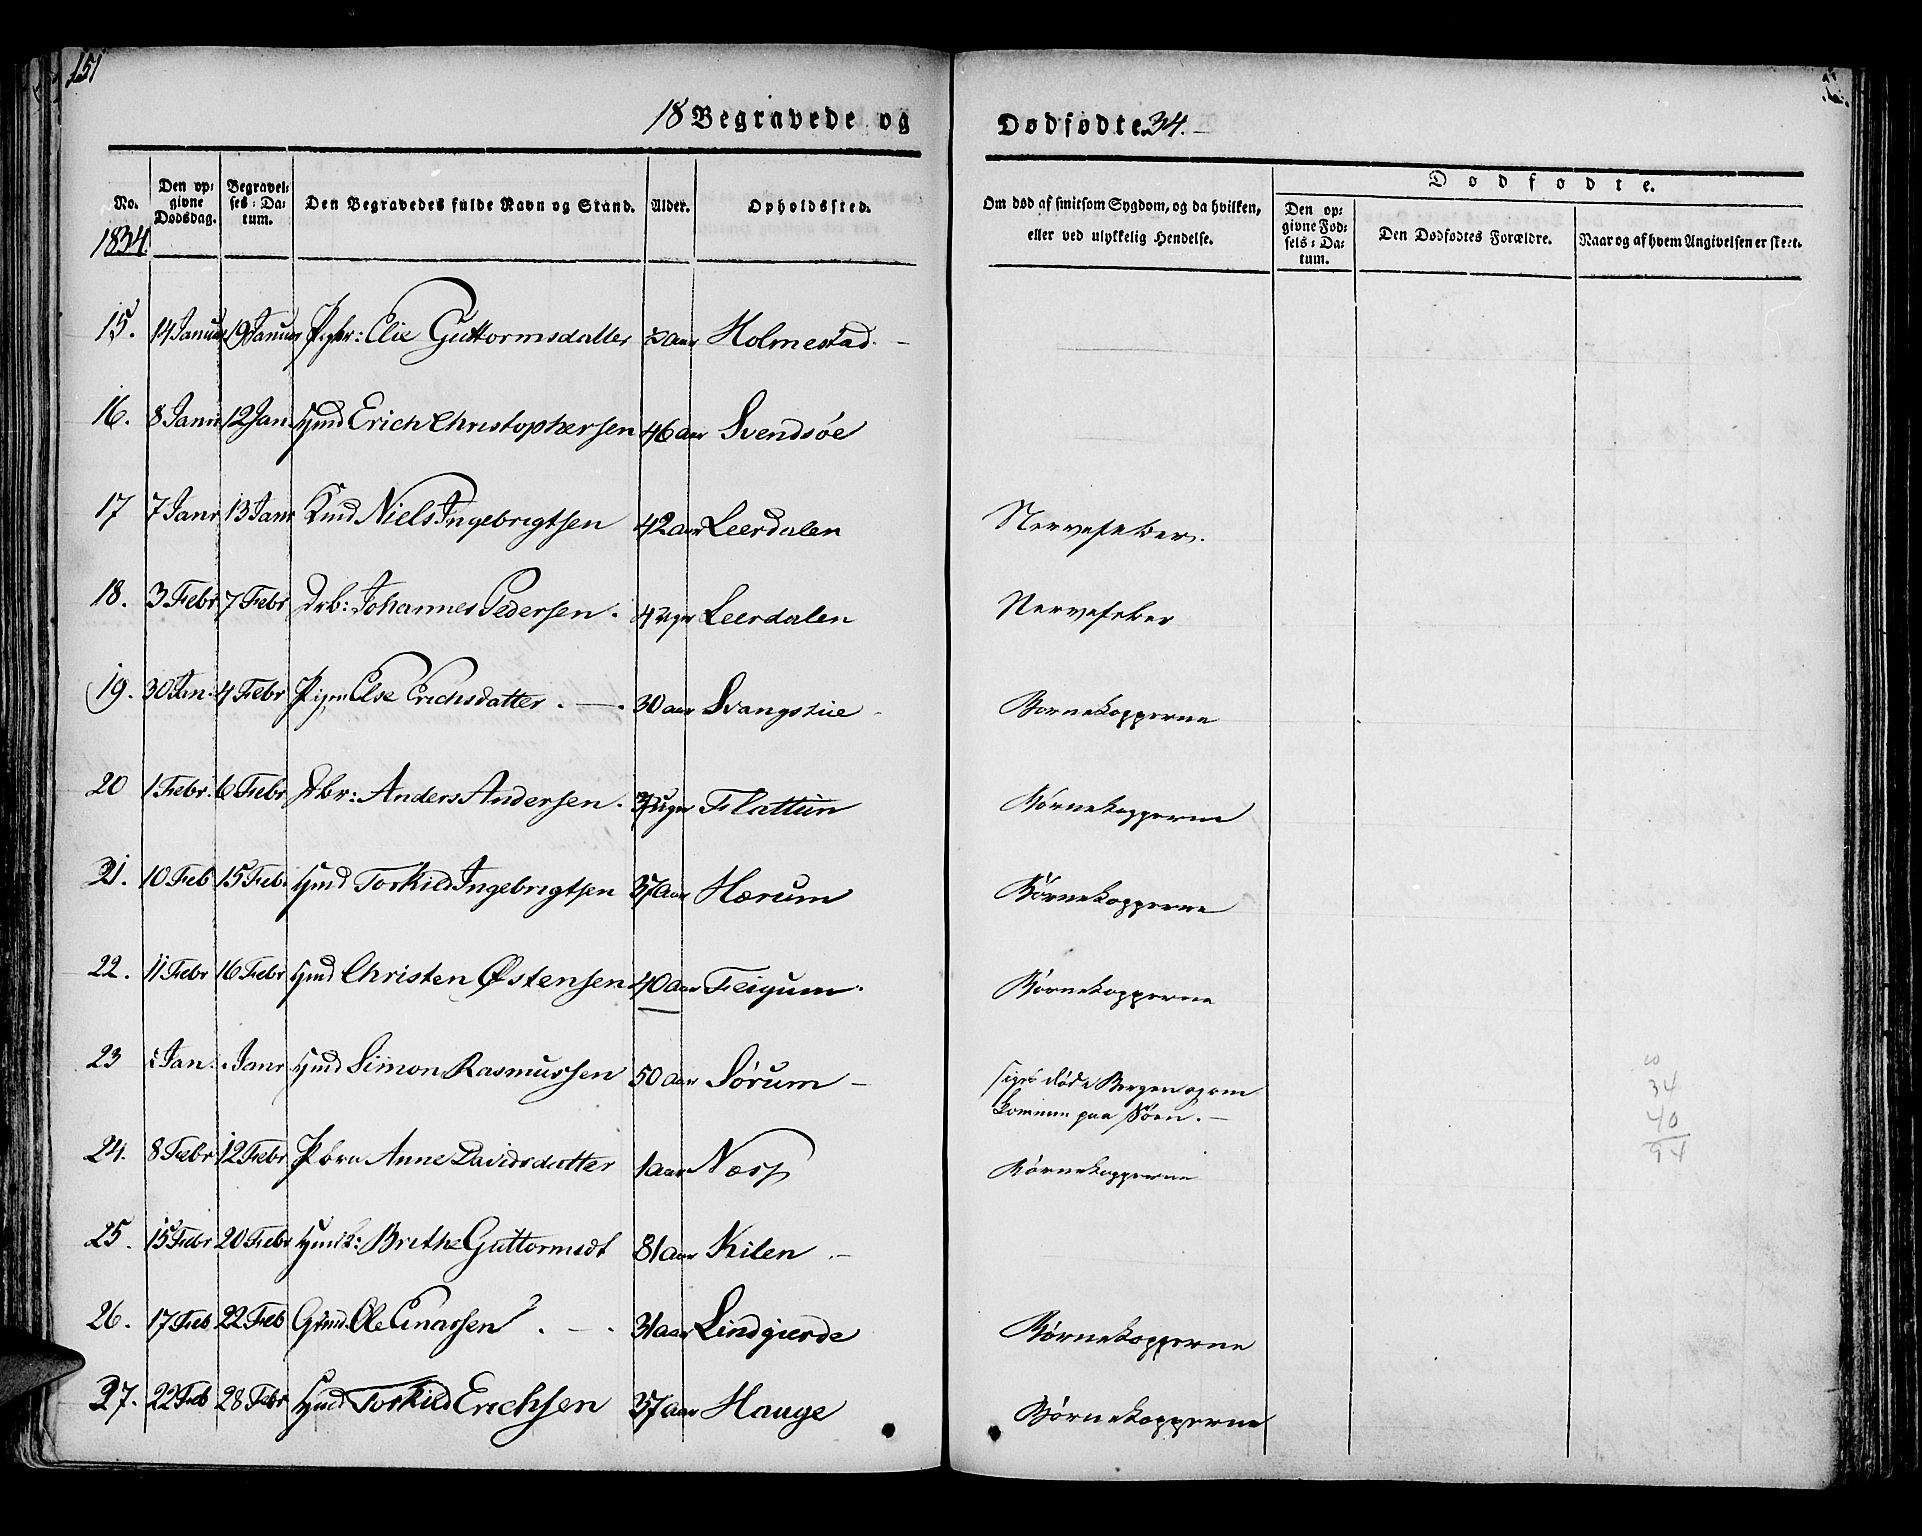 151
18 Begravede og Dødfødte 34.
No.
Den op-
givne
Dødsdag.
Begravel-
ses-Da-
tum.
Den Begravedes fulde Navn og Stand.
Alder.
Opholdssted.
Om død af smitsom Sygdom, og da hvilken,
eller ved ulykkelig Hendelse.
Dødfødte.
Den op-
givne Fød-
sels-Da-
tum.
Den Dødfødtes Forældre.
Naar og af hvem Angivelsen er skeet.
1834
15. 14 Januar 19 Januar Elie Guttormsdatter aar Holmestad.
16. 8 Janr 12 Jan. Hmd Erich Christophersen 46 aar Svendsøe
17 7 Janr 13 Janr Kmd Niels Ingebrigtsen 42 aar Leerdalen Nervefeber.
18. 3 Febr 7 Febr Drb: Johannes Pedersen. 4 uger Leerdalen Nervefeber
19. 30 Jan. 4 Febr Pigen Else Erichsdatter. 30 aar Svangstue Børnekopperne
20 1 Febr. 6 Febr Drbr: Anders Andersen. uger Flattun Børnekopperne
21. 10 Feb 15 Feb. Hmd Torkild Ingebrigtsen 37 Aar Hærum Børnekopperne
22. 11 Febr 16 Febr Hmd Christen Østensen 40 aar Feigum. Børnekopperne
23 Jan. Janr Hmd Simon Rasmussen 50 aar Sørum siges død i Bergen og om
kommen paa Søen.
24. 8 Febr 12 Febr Anne Davidsdatter 1 aar Næss Børnekopperne
25. 15 Febr 20 Febr Hmdk: Brithe Guttormsdt 81 aar Kilen
26. 17 Feb 22 Feb Gmd. Ole Einarsen 31 aar Lindgierde Børnekopperne
27. 22 Feb 28 Febr Hmd Torkild Erichsen 37 aar Hauge Børnekopperne
34
40
94